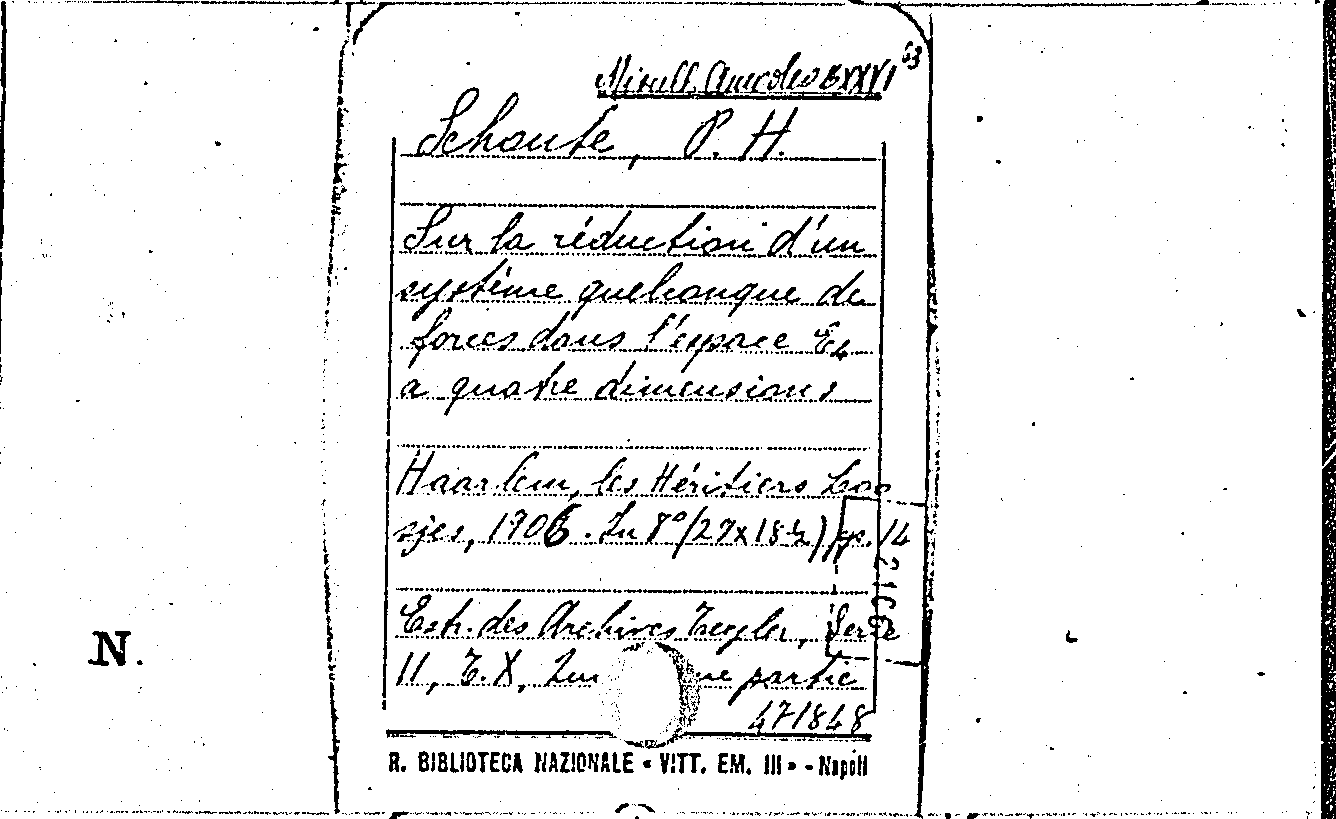 Miscell. B XXVI 63
Schoute, P. H.
Sur la réduction d'un
système quelconque de
forces dans l'espace E4
a quatre dimensions
Haarlem, les Héritiers Loo
sjes, 1906. In 8° (27x18½) pp. 14
Estr. des Archives Teyler, Serie
II, T. X, me partie
471848
R. BIBLIOTECA NAZIONALE « VITT. EM. III » - Napoli
N.